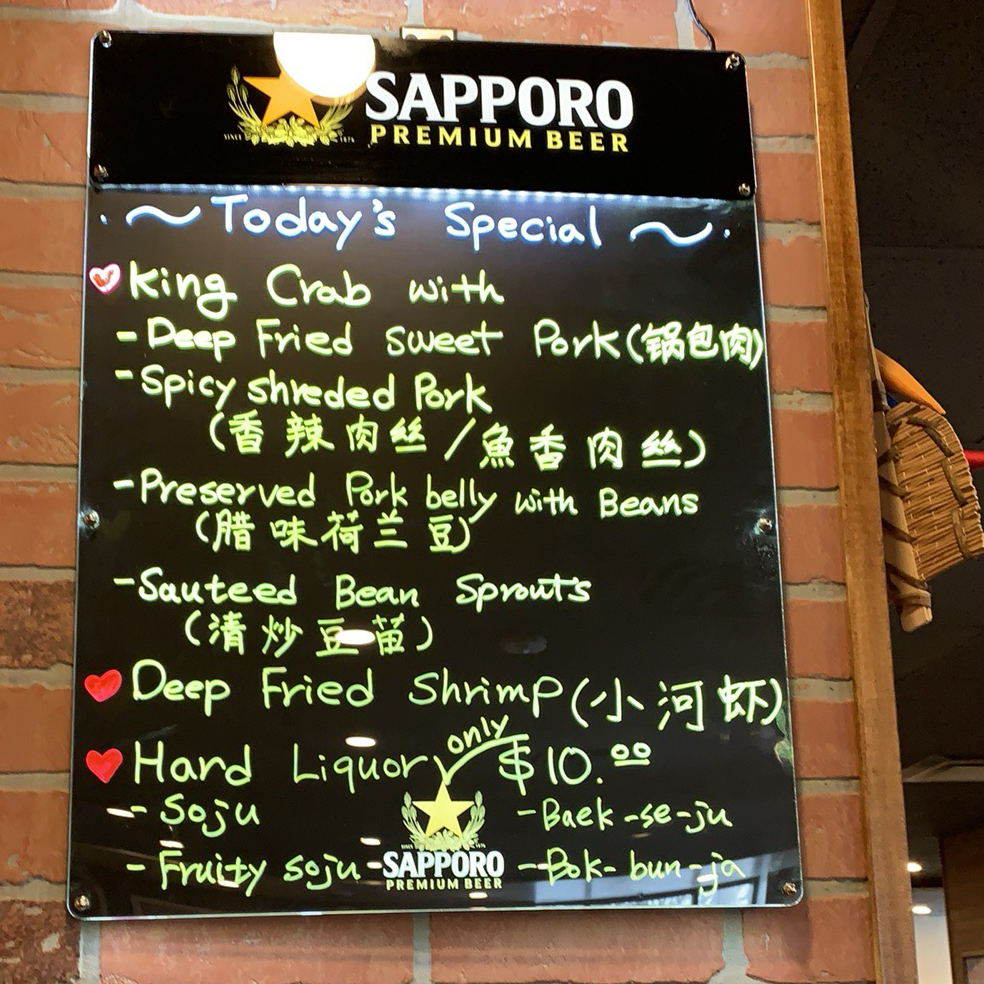 SAPPORO
SINCE 1876
PREMIUM BEER
~ Today's Special ~
King Crab with
- Deep Fried Sweet Pork (锅包肉)
- Spicy shreded Pork
(香辣肉丝/魚香肉丝)
- Preserved Pork belly with Beans
(腊味荷兰豆)
- Sauteed Bean Sprouts
(清炒豆苗)
Deep Fried Shrimp (小河虾)
only
Hard Liquor $10.00
- Soju - Baek-se-ju
- Fruity soju - Bok-bun-ja
SAPPORO
PREMIUM BEER